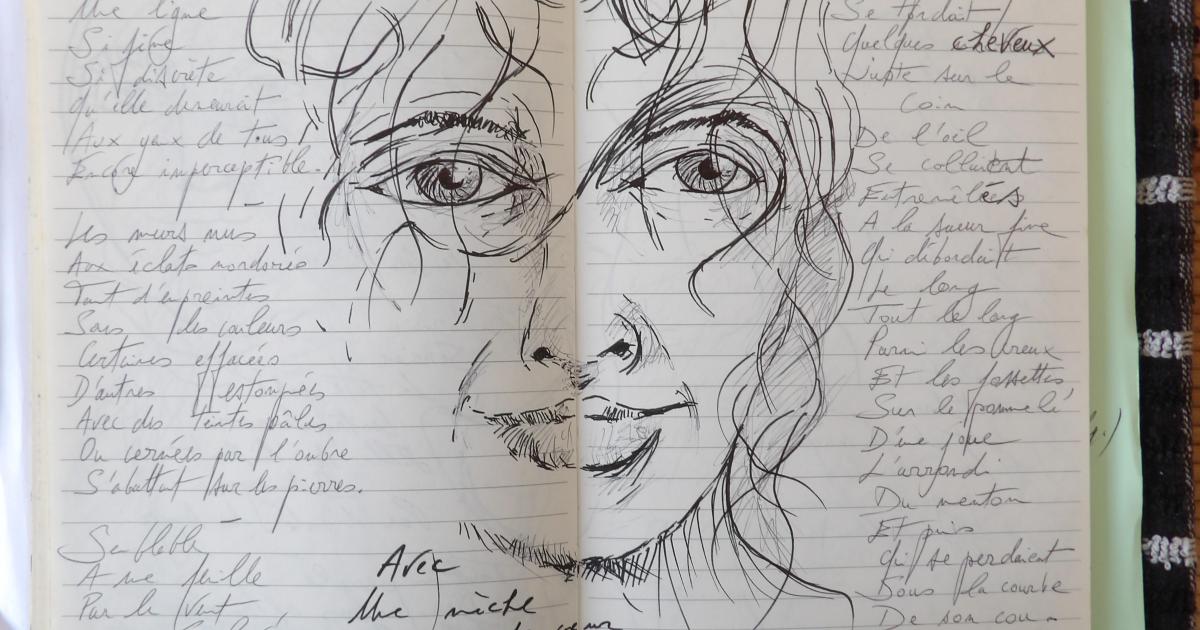 Une ligne
Si fine
Si discrète
Qu'elle demeurait
Aux yeux de tous
Encore imperceptible.
Les murs nus
Aux éclats mordorés
Tant d'empreintes
Sans les couleurs
Certaines effacées
D'autres estompées
Avec des teintes pâles
Ou cernées par l'ombre
S'abattant sur les pierres.
Semblable
A une feuille
Par le vent
Avec
Une mèche
Se tordait
Quelques cheveux
Juste sur le
Coin
De l'œil
Se collaient
Entremêlés
A la sueur fine
Qui débordait
Le long
Tout le long
Parmi les creux
Et les fossettes
Sur le pommelé
D'une joue
L'arrondi
Du menton
Et puis
Qui se perdaient
Sous la courbe
De son cou